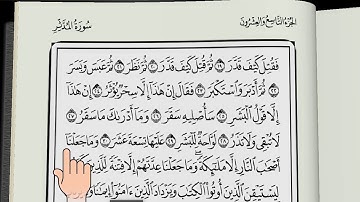 الجزء التاسع والعشرون
سورة المدثر
فَقُتِلَ كَيْفَ قَدَّرَ ١٩ ثُمَّ قُتِلَ كَيْفَ قَدَّرَ ٢٠ ثُمَّ نَظَرَ ٢١ ثُمَّ عَبَسَ وَبَسَرَ
٢٢ ثُمَّ أَدْبَرَ وَٱسْتَكْبَرَ ٢٣ فَقَالَ إِنْ هَٰذَآ إِلَّا سِحْرٌ يُؤْثَرُ ٢٤ إِنْ هَٰذَآ
إِلَّا قَوْلُ ٱلْبَشَرِ ٢٥ سَأُصْلِيهِ سَقَرَ ٢٦ وَمَآ أَدْرَىٰكَ مَا سَقَرُ ٢٧
لَا تُبْقِى وَلَا تَذَرُ ٢٨ لَوَّاحَةٌ لِّلْبَشَرِ ٢٩ عَلَيْهَا تِسْعَةَ عَشَرَ ٣٠ وَمَا جَعَلْنَآ
أَصْحَٰبَ ٱلنَّارِ إِلَّا مَلَٰٓئِكَةً وَمَا جَعَلْنَا عِدَّتَهُمْ إِلَّا فِتْنَةً لِّلَّذِينَ
لِيَسْتَيْقِنَ ٱلَّذِينَ أُوتُوا۟ ٱلْكِتَٰبَ وَيَزْدَادَ ٱلَّذِينَ ءَامَنُوٓا۟ إِيمَٰنًا